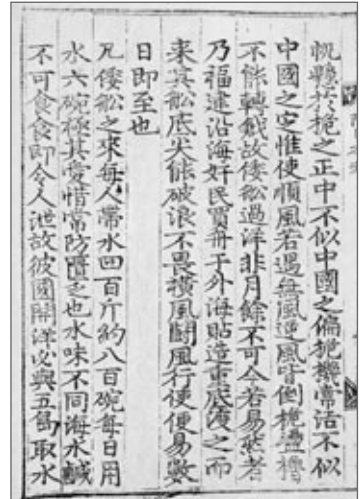 帆懸於桅之正中不似中國之偏桅機常活不似
中國之定惟使順風若遇無風逆風皆倒桅盪櫓
不能轉戧故倭舩過洋非月餘不可今若易然者
乃福建沿海奸民買舟于外海貼造重底渡之而
来其舩底尖能破浪不畏橫風鬪風行使便易數
日即至也
凡倭舩之來每人帶水四百斤約八百碗每日用
水六碗極其愛惜常防匱乏也水味不同海水鹹
不可食食即令人泄故彼國開洋必與五島取水